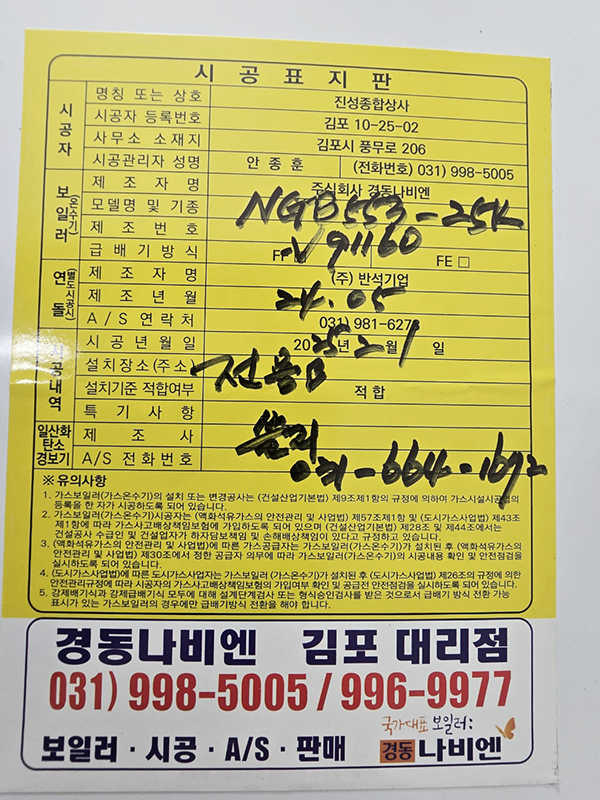 시공표지판
시공자 명칭 또는 상호 진성종합상사
시공자 등록번호 김포 10-25-02
사무소 소재지 김포시 풍무로 206
시공관리자 성명 안종훈 (전화번호) 031) 998-5005
보일러(온수기) 제조자명 주식회사 경동나비엔
모델명 및 기종 NGB553-25K
제조번호 V91160
급배기방식 FF FE □
연돌(별도시공시) 제조자명 (주) 반석기업
제조년월 24.05
A/S 연락처 031) 981-627
시공내역 시공년월일 2025년 2월 1일
설치장소(주소) 전용
설치기준 적합여부 적합
특기사항
일산화탄소경보기 제조사
A/S 전화번호 031-664-1692
※ 유의사항
1. 가스보일러(가스온수기)의 설치 또는 변경공사는 (건설산업기본법) 제9조제1항의 규정에 의하여 가스시설시공업의
등록을 한 자가 시공하도록 되어 있습니다.
2. 가스보일러(가스온수기)시공자는 (액화석유가스의 안전관리 및 사업법) 제57조제1항 및 (도시가스사업법) 제43조
제1항에 따라 가스사고배상책임보험에 가입하도록 되어 있으며 (건설산업기본법) 제28조 및 제44조에서는
건설공사 수급인 및 건설업자가 하자담보책임 및 손해배상책임이 있다고 규정하고 있습니다.
3. (액화석유가스의 안전관리 및 사업법)에 따른 가스공급자는 가스보일러(가스온수기)가 설치된 후 (액화석유가스의
안전관리 및 사업법) 제30조에서 정한 공급자 의무에 따라 가스보일러(가스온수기)의 시공내용 확인 및 안전점검을
실시하도록 되어 있습니다.
4. (도시가스사업법)에 따른 도시가스사업자는 가스보일러 (가스온수기)가 설치된 후 (도시가스사업법) 제26조의 규정에 의한
안전관리규정에 따라 시공자의 가스사고배상책임보험의 가입여부 확인 및 공급전 안전점검을 실시하도록 되어 있습니다.
5. 강제배기식과 강제급배기식 모두에 대해 설계단계검사 또는 형식승인검사를 받은 것으로서 급배기 방식 전환 가능
표시가 있는 가스보일러의 경우에만 급배기방식 전환을 해야 합니다.
경동나비엔 김포 대리점
031) 998-5005 / 996-9977
국가대표 보일러:
보일러 · 시공 · A/S · 판매 경동 나비엔